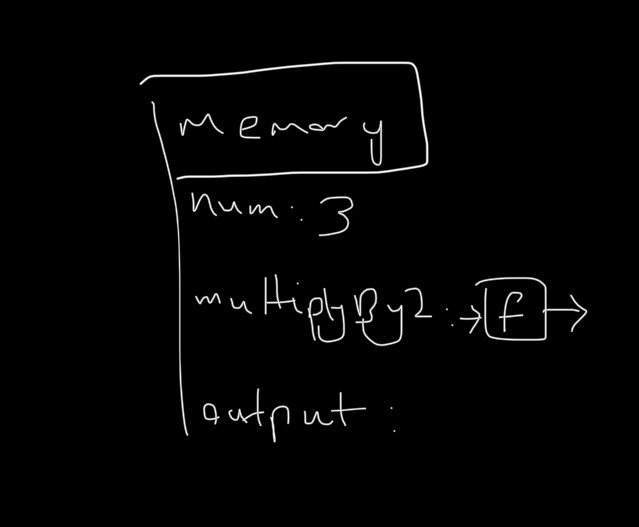 Memory
num: 3
multiplyBy2: → f →
output: